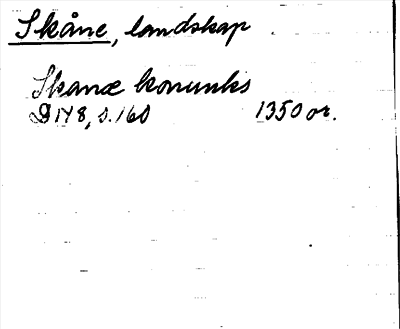 Skåne, landskap
Skanæ konunks
D 148, s. 160 1350 or.